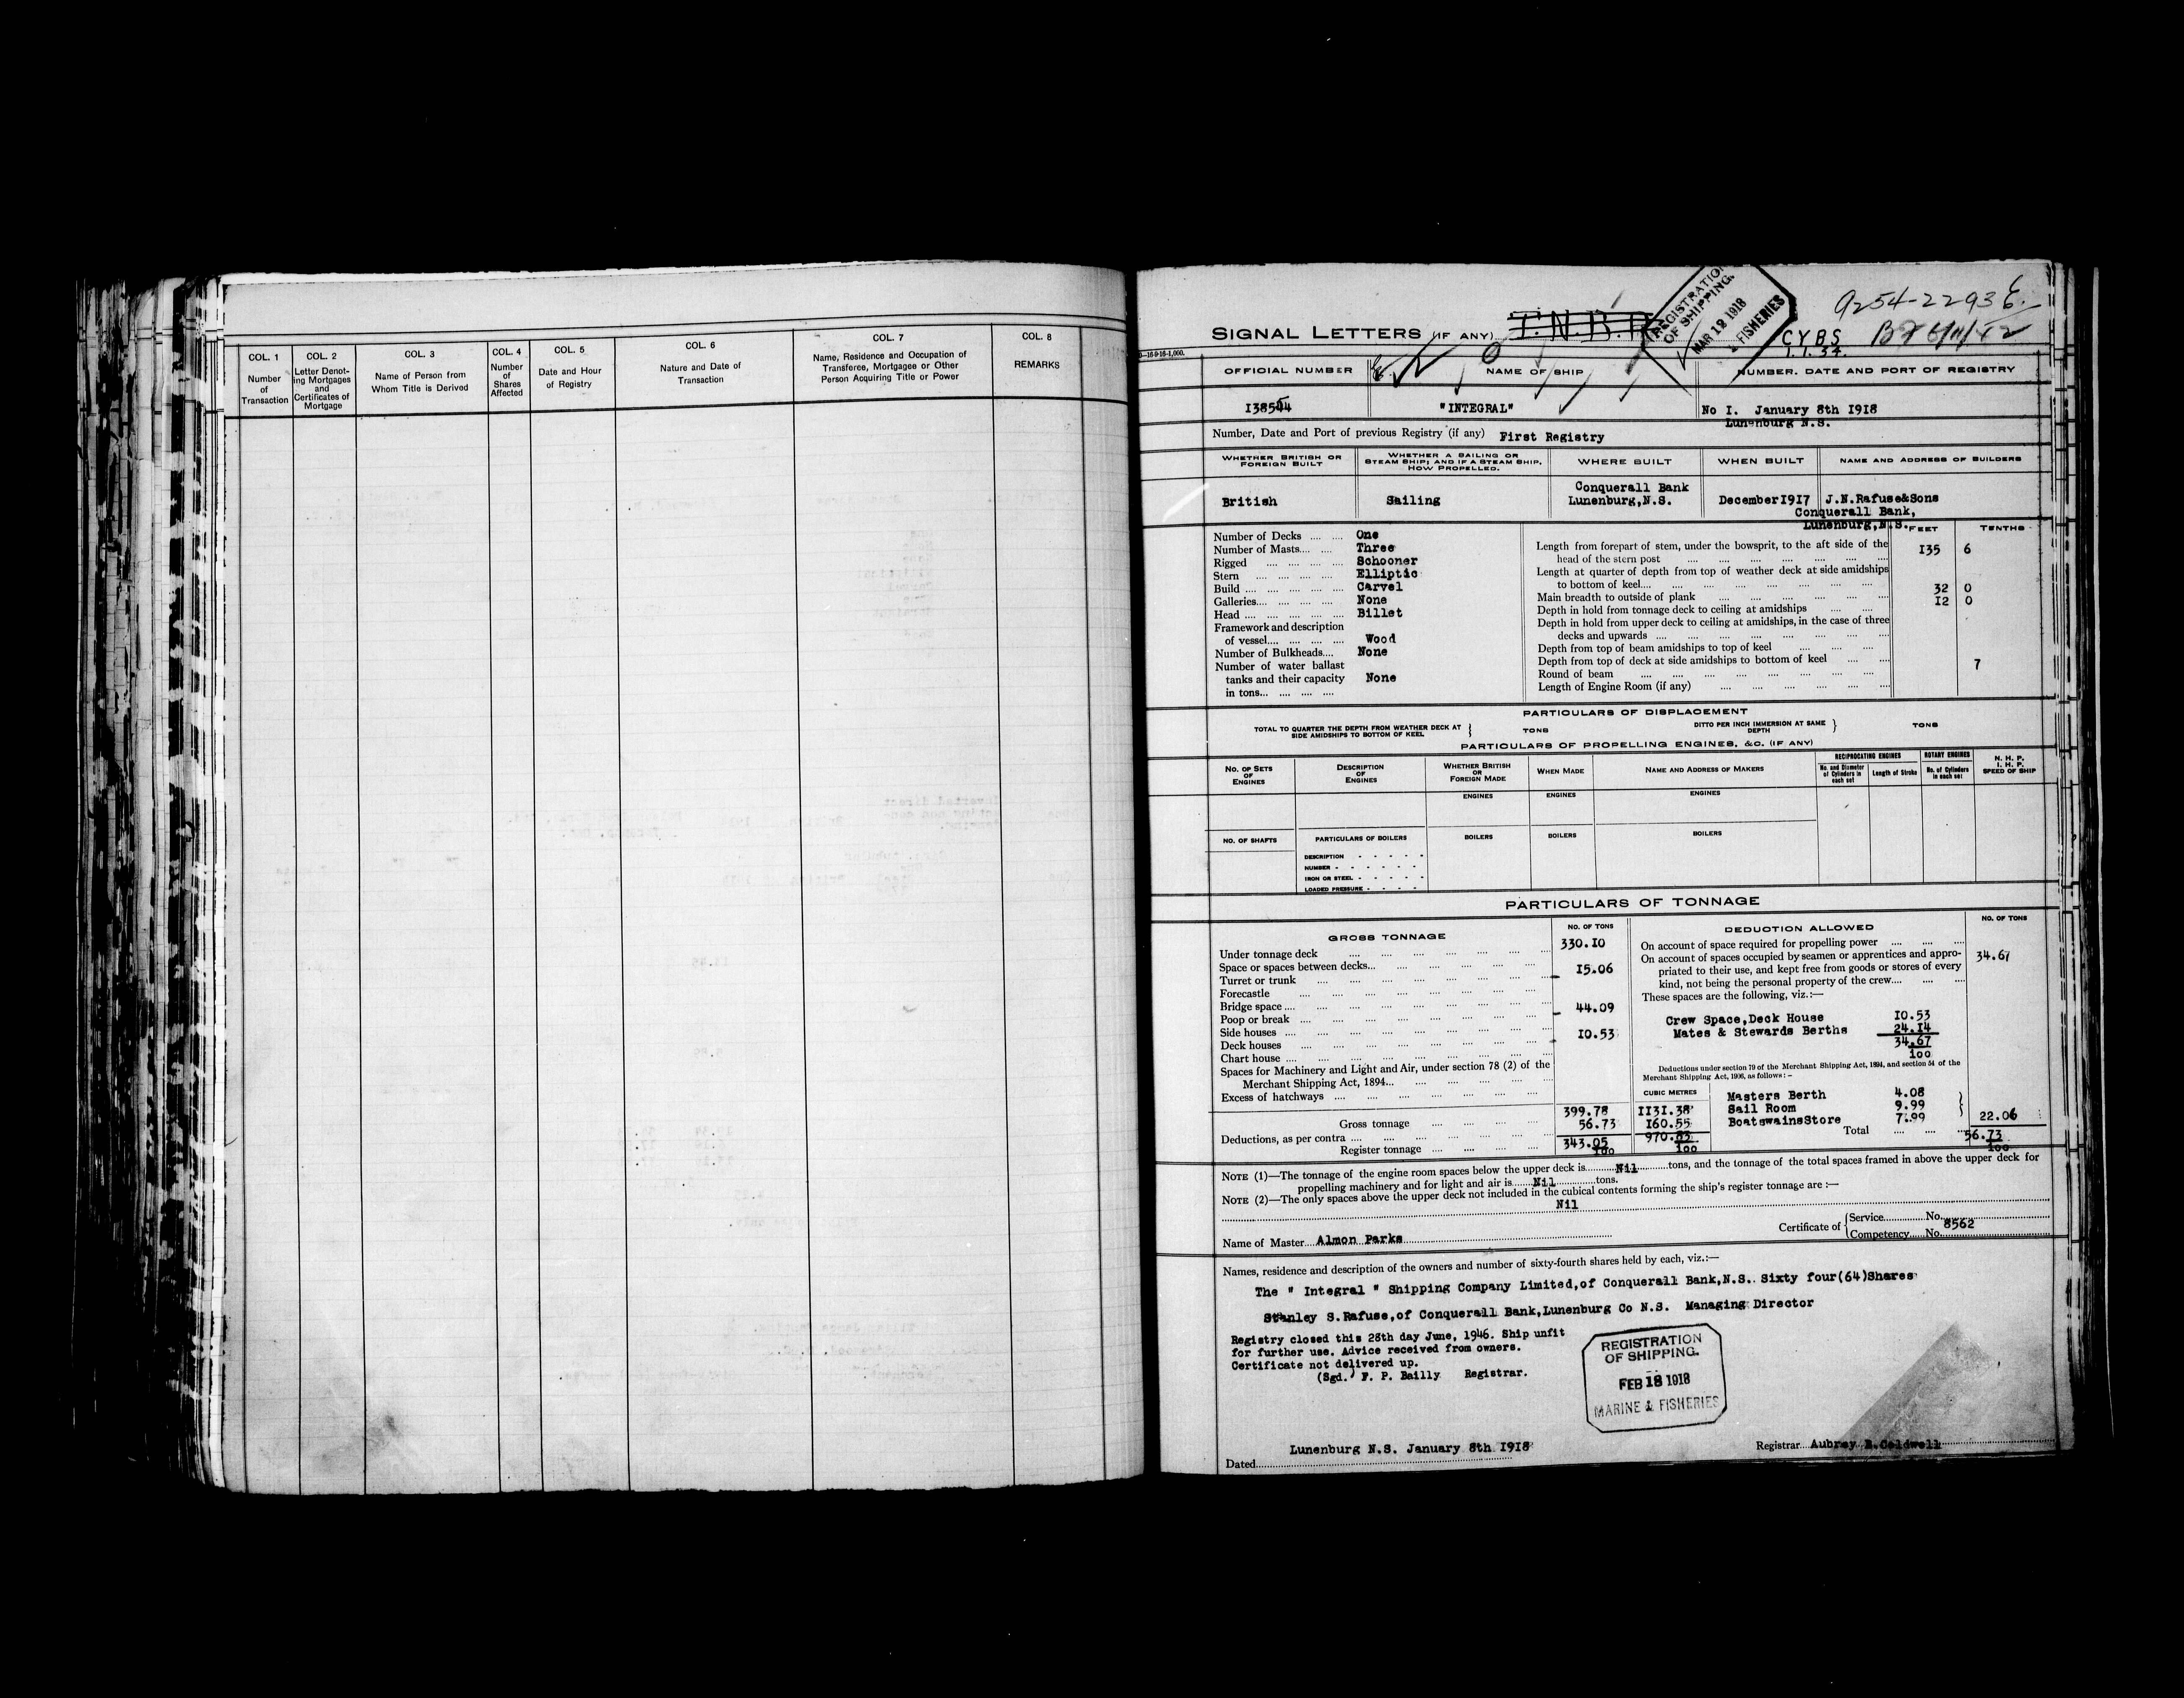 COL. 1
Number
of
Transaction
COL. 2
Letter Denot-
ing Mortgages
and
Certificates of
Mortgage
COL. 3
Name of Person from
Whom Title is Derived
COL. 4
Number
of
Shares
Affected
COL. 5
Date and Hour
of Registry
COL. 6
Nature and Date of
Transaction
COL. 7
Name, Residence and Occupation of
Transferee, Mortgagee or Other
Person Acquiring Title or Power
COL. 8
REMARKS
REGISTRATION
OF SHIPPING.
MAR 12 1918
& FISHERIES
SIGNAL LETTERS (IF ANY) T.N.B.
CYBS
1.1.34.
OFFICIAL NUMBER
NAME OF SHIP
NUMBER, DATE AND PORT OF REGISTRY
"INTEGRAL"
No I. January 8th 1918
Lunenburg N.S.
Number, Date and Port of previous Registry (if any) First Registry
WHETHER BRITISH OR
FOREIGN BUILT
WHETHER A SAILING OR
STEAM SHIP; AND IF A STEAM SHIP,
HOW PROPELLED.
WHERE BUILT
WHEN BUILT
NAME AND ADDRESS OF BUILDERS
British
Sailing
Conquerall Bank
Lunenburg,N.S.
December1917
J.N.Rafuse&Sons
Conquerall Bank,
Lunenburg,N.S.
FEET
TENTHS
Number of Decks One
Number of Masts Three
Rigged Schooner
Stern Elliptic
Build Carvel
Galleries None
Head Billet
Framework and description
of vessel Wood
Number of Bulkheads None
Number of water ballast
tanks and their capacity None
in tons
Length from forepart of stem, under the bowsprit, to the aft side of the
head of the stern post 135 6
Length at quarter of depth from top of weather deck at side amidships
to bottom of keel
Main breadth to outside of plank 32 0
Depth in hold from tonnage deck to ceiling at amidships 12 0
Depth in hold from upper deck to ceiling at amidships, in the case of three
decks and upwards
Depth from top of beam amidships to top of keel
Depth from top of deck at side amidships to bottom of keel
Round of beam 7
Length of Engine Room (if any)
PARTICULARS OF DISPLACEMENT
TOTAL TO QUARTER THE DEPTH FROM WEATHER DECK AT
SIDE AMIDSHIPS TO BOTTOM OF KEEL
TONS
DITTO PER INCH IMMERSION AT SAME
DEPTH
TONS
PARTICULARS OF PROPELLING ENGINES, &C. (IF ANY)
NO. OF SETS
OF
ENGINES
DESCRIPTION
OF
ENGINES
WHETHER BRITISH
OR
FOREIGN MADE
WHEN MADE
NAME AND ADDRESS OF MAKERS
RECIPROCATING ENGINES
No. and Diameter
of Cylinders in
each set
Length of Stroke
ROTARY ENGINES
No. of Cylinders
in each set
N. H. P.
I. H. P.
SPEED OF SHIP
ENGINES
ENGINES
ENGINES
NO. OF SHAFTS
PARTICULARS OF BOILERS
BOILERS
BOILERS
BOILERS
DESCRIPTION
NUMBER
IRON OR STEEL
LOADED PRESSURE
PARTICULARS OF TONNAGE
GROSS TONNAGE
NO. OF TONS
Under tonnage deck 330.10
Space or spaces between decks
Turret or trunk 15.06
Forecastle
Bridge space
Poop or break 44.09
Side houses
Deck houses 10.53
Chart house
Spaces for Machinery and Light and Air, under section 78 (2) of the
Merchant Shipping Act, 1894
Excess of hatchways
CUBIC METRES
Gross tonnage 399.78 1131.38
Deductions, as per contra 56.73 160.55
Register tonnage 343.05 970.83
100 100
DEDUCTION ALLOWED
NO. OF TONS
On account of space required for propelling power
On account of spaces occupied by seamen or apprentices and appro- 34.67
priated to their use, and kept free from goods or stores of every
kind, not being the personal property of the crew
These spaces are the following, viz.:—
Crew Space,Deck House 10.53
Mates & Stewards Berths 24.14
34.67
100
Deductions under section 79 of the Merchant Shipping Act, 1894, and section 54 of the
Merchant Shipping Act, 1906, as follows:—
Masters Berth 4.08
Sail Room 9.99
BoatswainsStore 7.99
22.06
Total 56.73
100
NOTE (1)—The tonnage of the engine room spaces below the upper deck is Nil tons, and the tonnage of the total spaces framed in above the upper deck for
propelling machinery and for light and air is Nil tons.
NOTE (2)—The only spaces above the upper deck not included in the cubical contents forming the ship's register tonnage are :—
Nil
Name of Master Almon Parks
Certificate of
Service No.
Competency No. 8562
Names, residence and description of the owners and number of sixty-fourth shares held by each, viz.:—
The " Integral " Shipping Company Limited,of Conquerall Bank,N.S. Sixty four(64)Shares
Stanley S.Rafuse,of Conquerall Bank,Lunenburg Co N.S. Managing Director
Registry closed this 28th day June, 1946. Ship unfit
for further use. Advice received from owners.
Certificate not delivered up.
(Sgd.) F. P. Bailly Registrar.
REGISTRATION
OF SHIPPING.
FEB 18 1918
MARINE & FISHERIES
Lunenburg N.S. January 8th 1918
Dated
Registrar Aubrey B.Caldwell